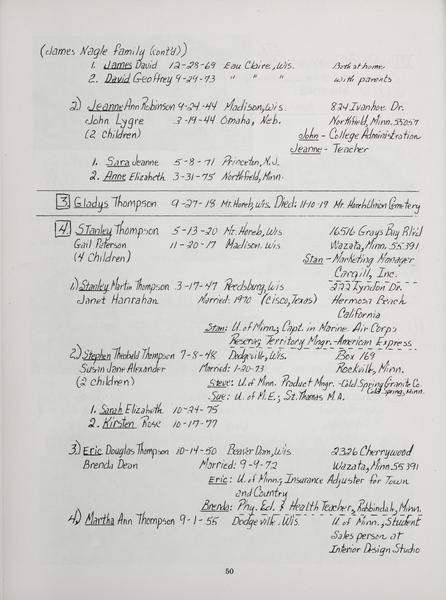 (James Nagle Family (cont'd))
1. James David 12-28-69 Eau Claire, Wis. Both at home
2. David Geoffrey 9-29-73 " " " with parents
2.) Jeanne Ann Robinson 9-24-44 Madison, Wis. 824 Ivanhoe Dr.
John Lygre 3-19-44 Omaha, Neb. Northfield, Minn. 55057
(2 children) John - College Administration
Jeanne - Teacher
1. Sara Jeanne 5-8-71 Princeton, N.J.
2. Anne Elizabeth 3-31-75 Northfield, Minn.
3. Gladys Thompson 9-27-18 Mt. Horeb, Wis. Died: 11-10-19 Mt. Horeb Union Cemetery
4. Stanley Thompson 5-13-20 Mt. Horeb, Wis. 16516 Grays Bay Blvd
Gail Peterson 11-20-17 Madison, Wis. Wazata, Minn. 55391
(4 Children) Stan - Marketing Manager
Cargill, Inc.
1.) Stanley Martin Thompson 3-17-47 Reedsburg, Wis 222 Lyndon Dr.
Janet Hanrahan Married: 1970 (Cisco, Texas) Hermosa Beach
California
Stan: U. of Minn.; Capt. in Marine Air Corps
Reserve; Territory Mngr. - American Express
2.) Stephen Theobald Thompson 7-8-48 Dodgeville, Wis. Box 169
Susan Jane Alexander Married: 1-20-73 Rockville, Minn.
(2 children) Steve: U. of Minn. Product Mngr. - Cold Spring Granite Co.
Cold Spring, Minn.
Sue: U. of M.E.; St. Thomas M.A.
1. Sarah Elizabeth 10-24-75
2. Kirsten Rose 10-17-77
3.) Eric Douglas Thompson 10-14-50 Beaver Dam, Wis 2326 Cherrywood
Brenda Dean Married: 9-9-72 Wazata, Minn 55391
Eric: U. of Minn.; Insurance Adjuster for Town
and Country
Brenda: Phy. Ed. & Health Teacher, Robbindah, Minn.
4.) Martha Ann Thompson 9-1-55 Dodgeville, Wis. U. of Minn., Student
Sales person at
Interior Design Studio
50